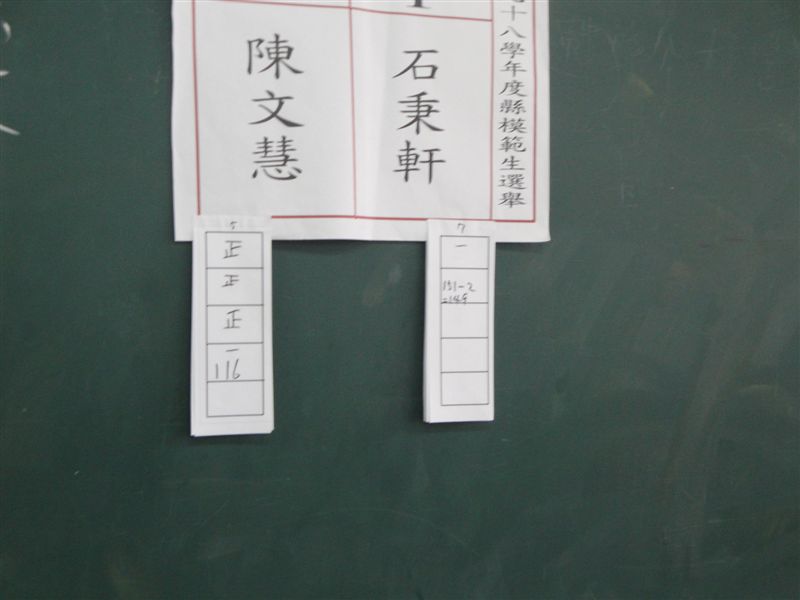 十八學年度縣模範生選舉
石秉軒
陳文慧
7
一
151-2
=149
5
正
正
正
一
116